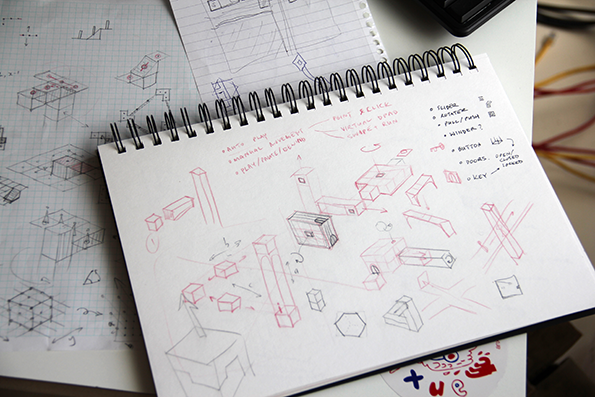 • AUTO PLAY
• MANUAL
• PLAY/PAUSE/REWIND
POINT & CLICK
VIRTUAL DPAD
SWIPE + RUN
○ SLIDER
○ ROTATER
○ PULL/PUSH
○ WINDER?
○ BUTTON
○ DOORS. OPEN/
CLOSED
LOCKED
○ KEY